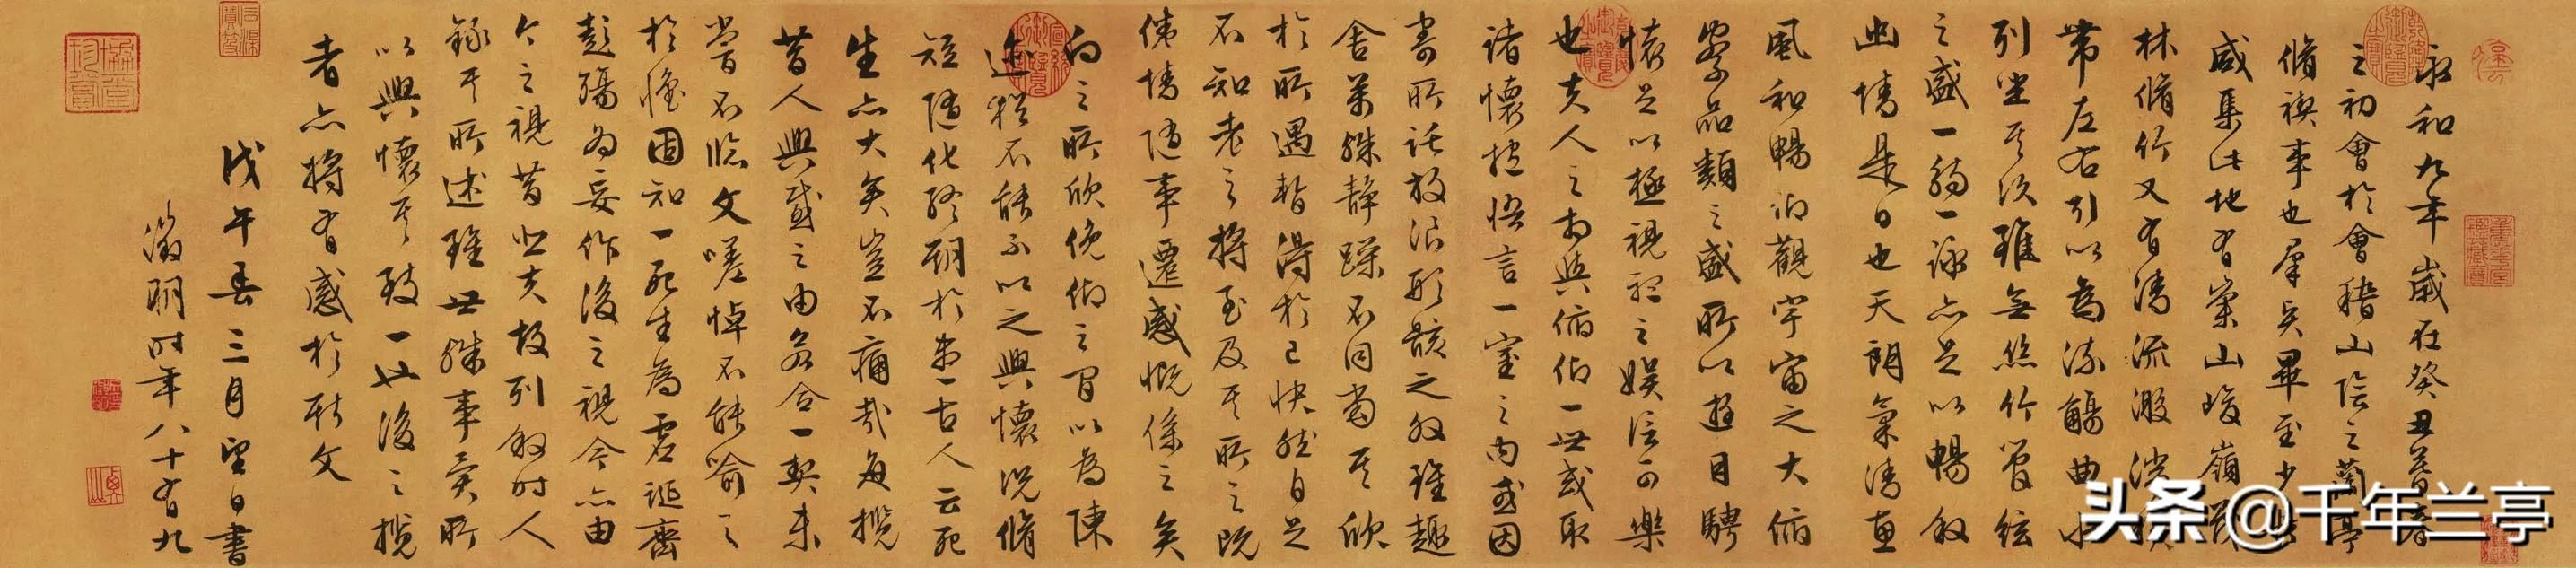 永和九年歲在癸丑暮春
之初會於會稽山陰之蘭亭
脩禊事也羣賢畢至少長
咸集此地有崇山峻嶺茂
林脩竹又有清流激湍映
帶左右引以為流觴曲水
列坐其次雖無絲竹管絃
之盛一觴一詠亦足以暢敘
幽情是日也天朗氣清惠
風和暢仰觀宇宙之大俯
察品類之盛所以遊目騁
懷足以極視聽之娛信可樂
也夫人之相與俯仰一世或取
諸懷抱悟言一室之內或因
寄所託放浪形骸之外雖趣
舍萬殊靜躁不同當其欣
於所遇暫得於己快然自足
不知老之將至及其所之既
倦情隨事遷感慨係之矣
向之所欣俛仰之間以為陳
迹猶不能不以之興懷況脩
短隨化終期於盡古人云死
生亦大矣豈不痛哉每攬
昔人興感之由若合一契未
嘗不臨文嗟悼不能喻之
於懷固知一死生為虛誕齊
彭殤為妄作後之視今亦由
今之視昔悲夫故列敘時人
錄其所述雖世殊事異所
以興懷其致一也後之攬
者亦將有感於斯文
戊午春三月望日書
徵明時年八十有九
头条@千年兰亭